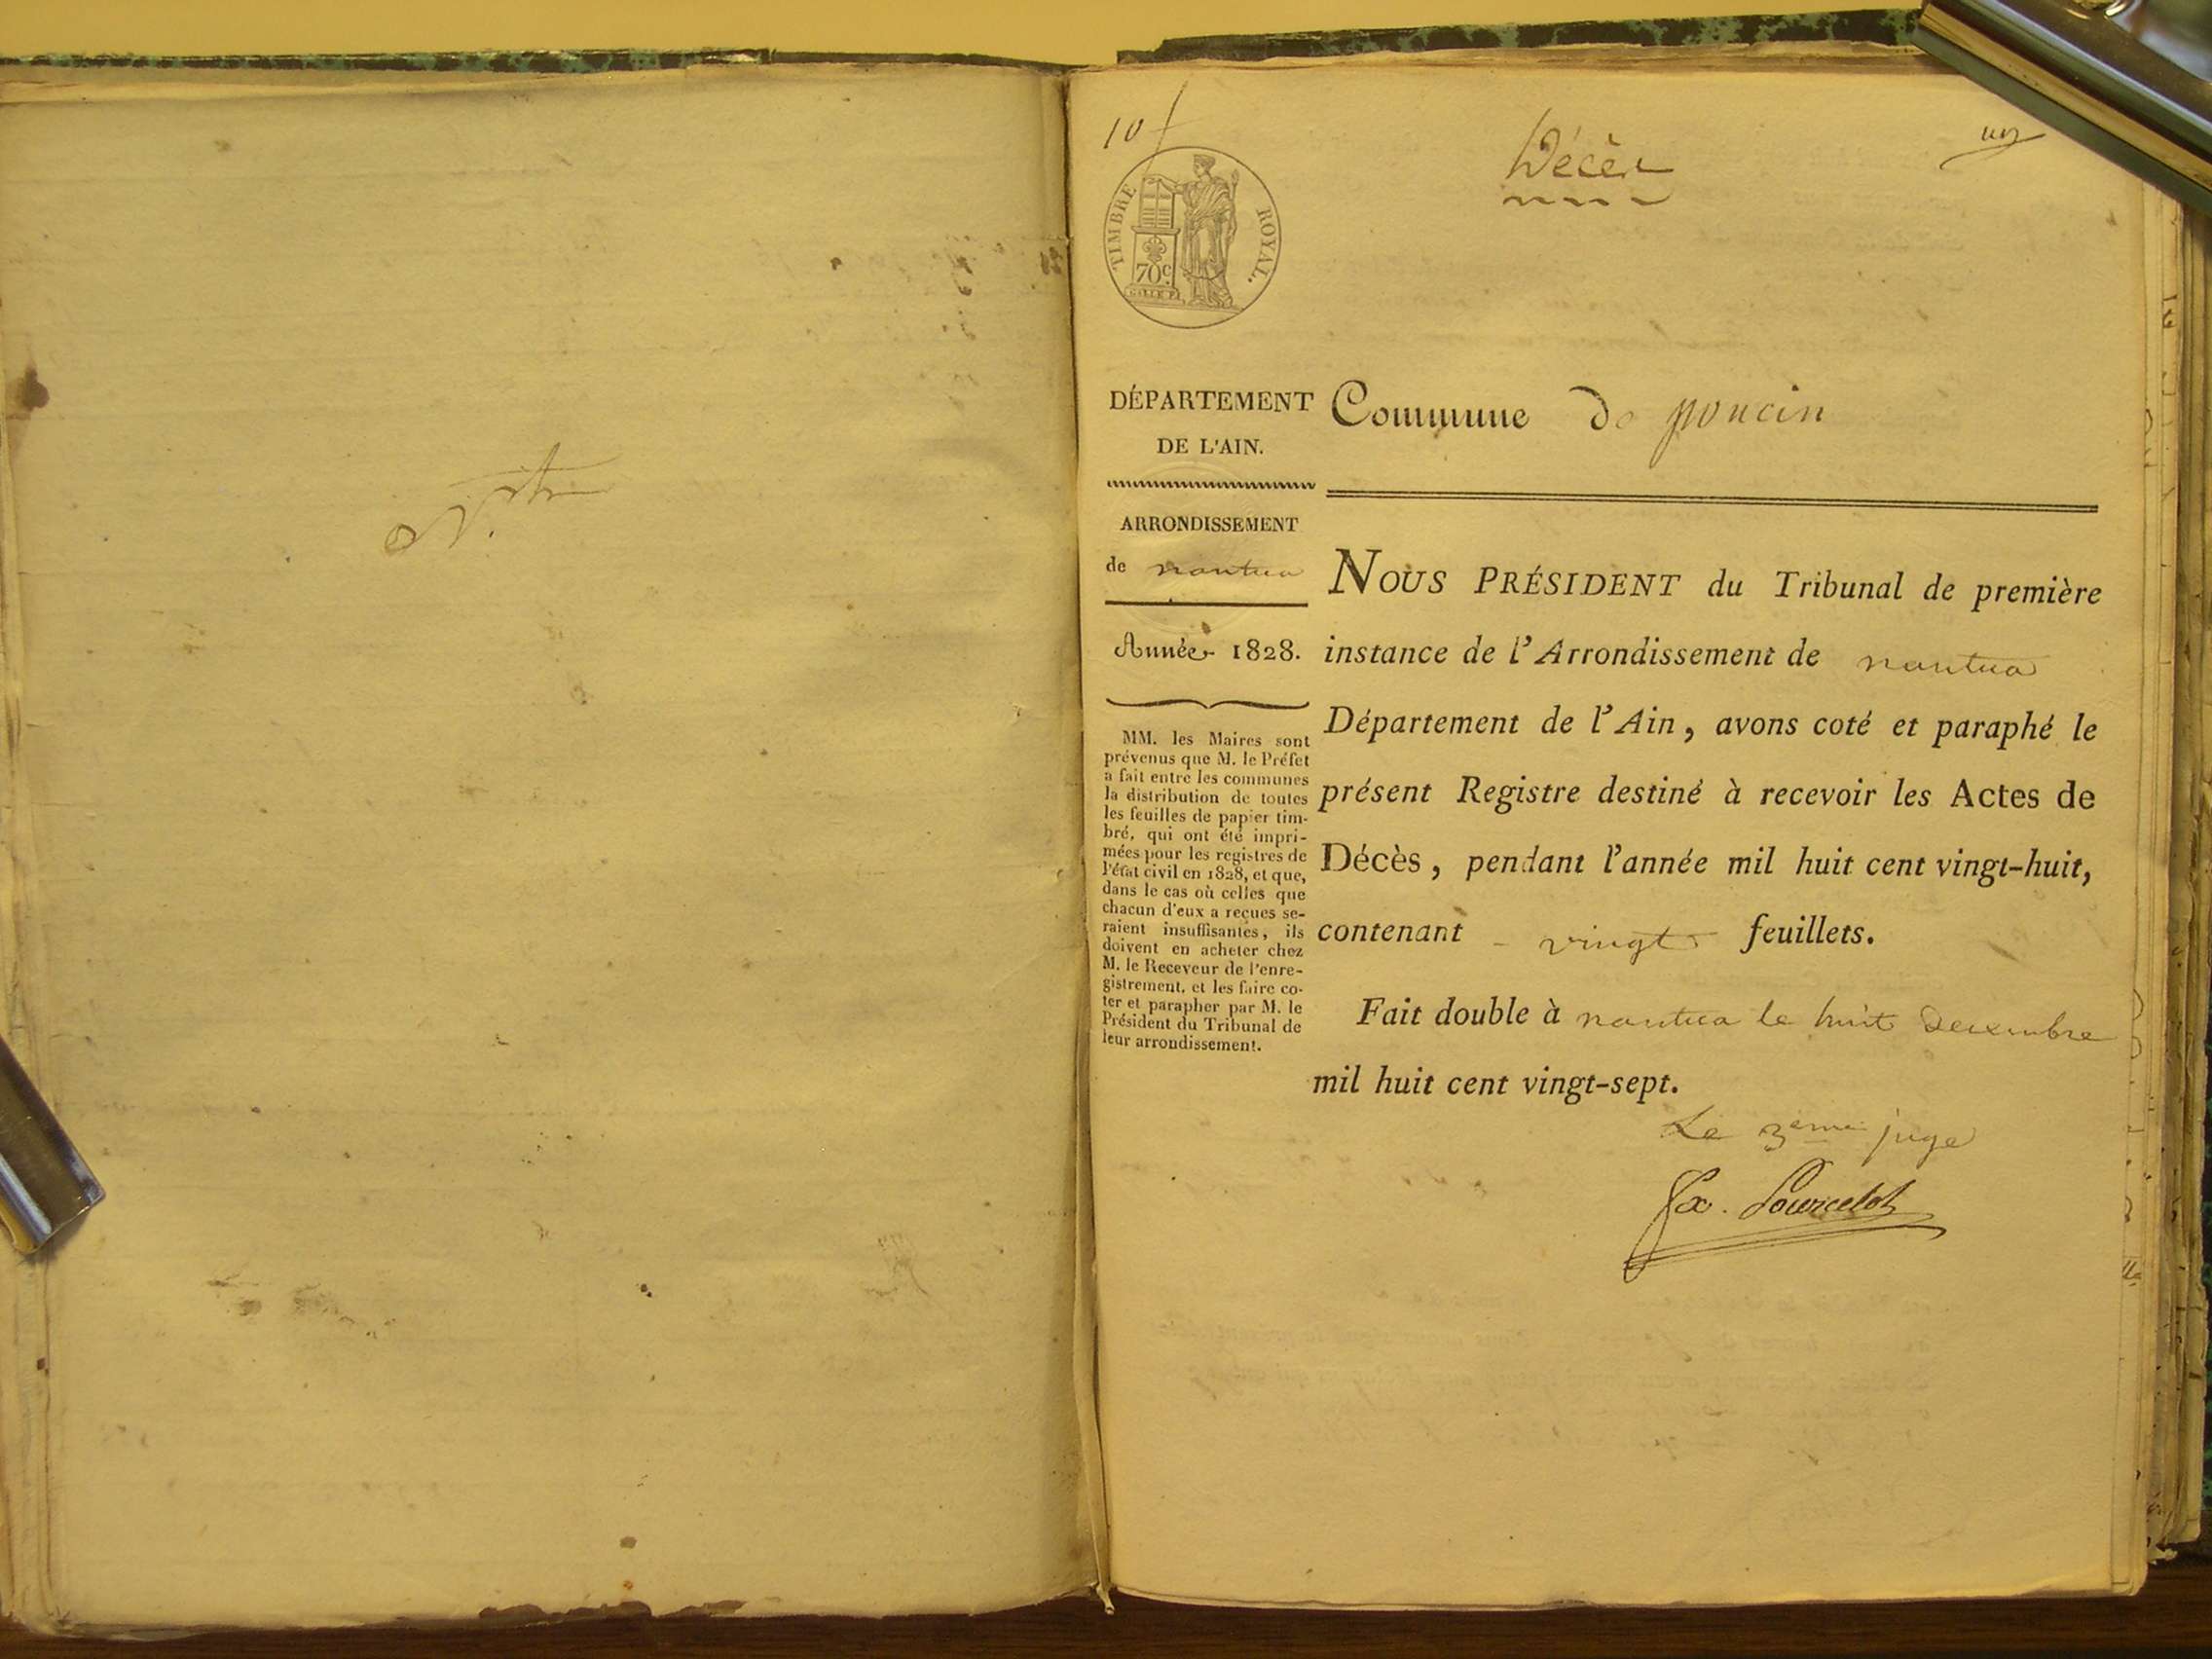 10
Décès
TIMBRE ROYAL.
70c
DÉPARTEMENT
DE L'AIN.
Commune de poncin
ARRONDISSEMENT
de nantua
Année 1828.
MM. les Maires sont
prévenus que M. le Préfet
a fait entre les communes
la distribution de toutes
les feuilles de papier tim-
bré, qui ont été impri-
mées pour les registres de
l'état civil en 1828, et que,
dans le cas où celles que
chacun d'eux a reçues se-
raient insuffisantes, ils
doivent en acheter chez
M. le Receveur de l'enre-
gistrement, et les faire co-
ter et parapher par M. le
Président du Tribunal de
leur arrondissement.
NOUS PRÉSIDENT du Tribunal de première
instance de l'Arrondissement de nantua
Département de l'Ain, avons coté et paraphé le
présent Registre destiné à recevoir les Actes de
Décès, pendant l'année mil huit cent vingt-huit,
contenant vingt feuillets.
Fait double à nantua le huit decembre
mil huit cent vingt-sept.
Le 3eme juge